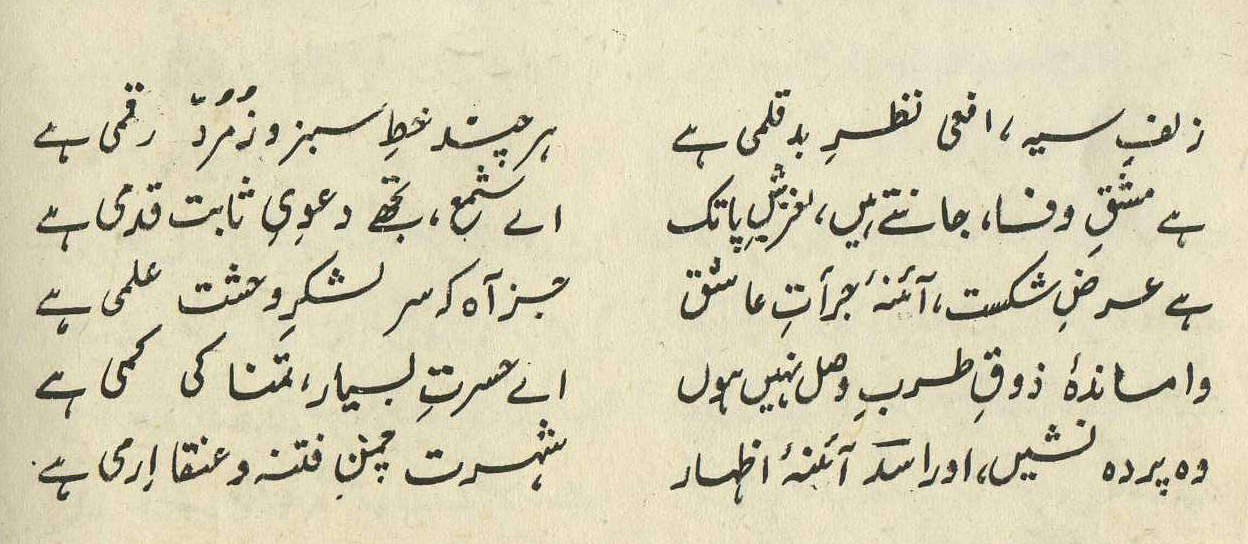 زلفِ سیہ، افعی نظرِ بد قلمی ہے ہر چند خطِ سبز و زُمُرّد رقمی ہے
ہے مشقِ وفا، جانتے ہیں، لغزشِ پا تک اے شمع، تجھے دعویِ ثابت قدمی ہے
ہے عرضِ شکست، آئنۂ جرأتِ عاشق جز آہ کہ سرِ لشکرِ وحشت علمی ہے
واماندۂ ذوقِ طربِ وصل نہیں ہوں اے حسرتِ بسیار، تمنا کی کمی ہے
وہ پردہ نشیں، اور اسدؔ آئینۂ اظہار شہرت چمنِ فتنہ و عنقا اِرمی ہے.